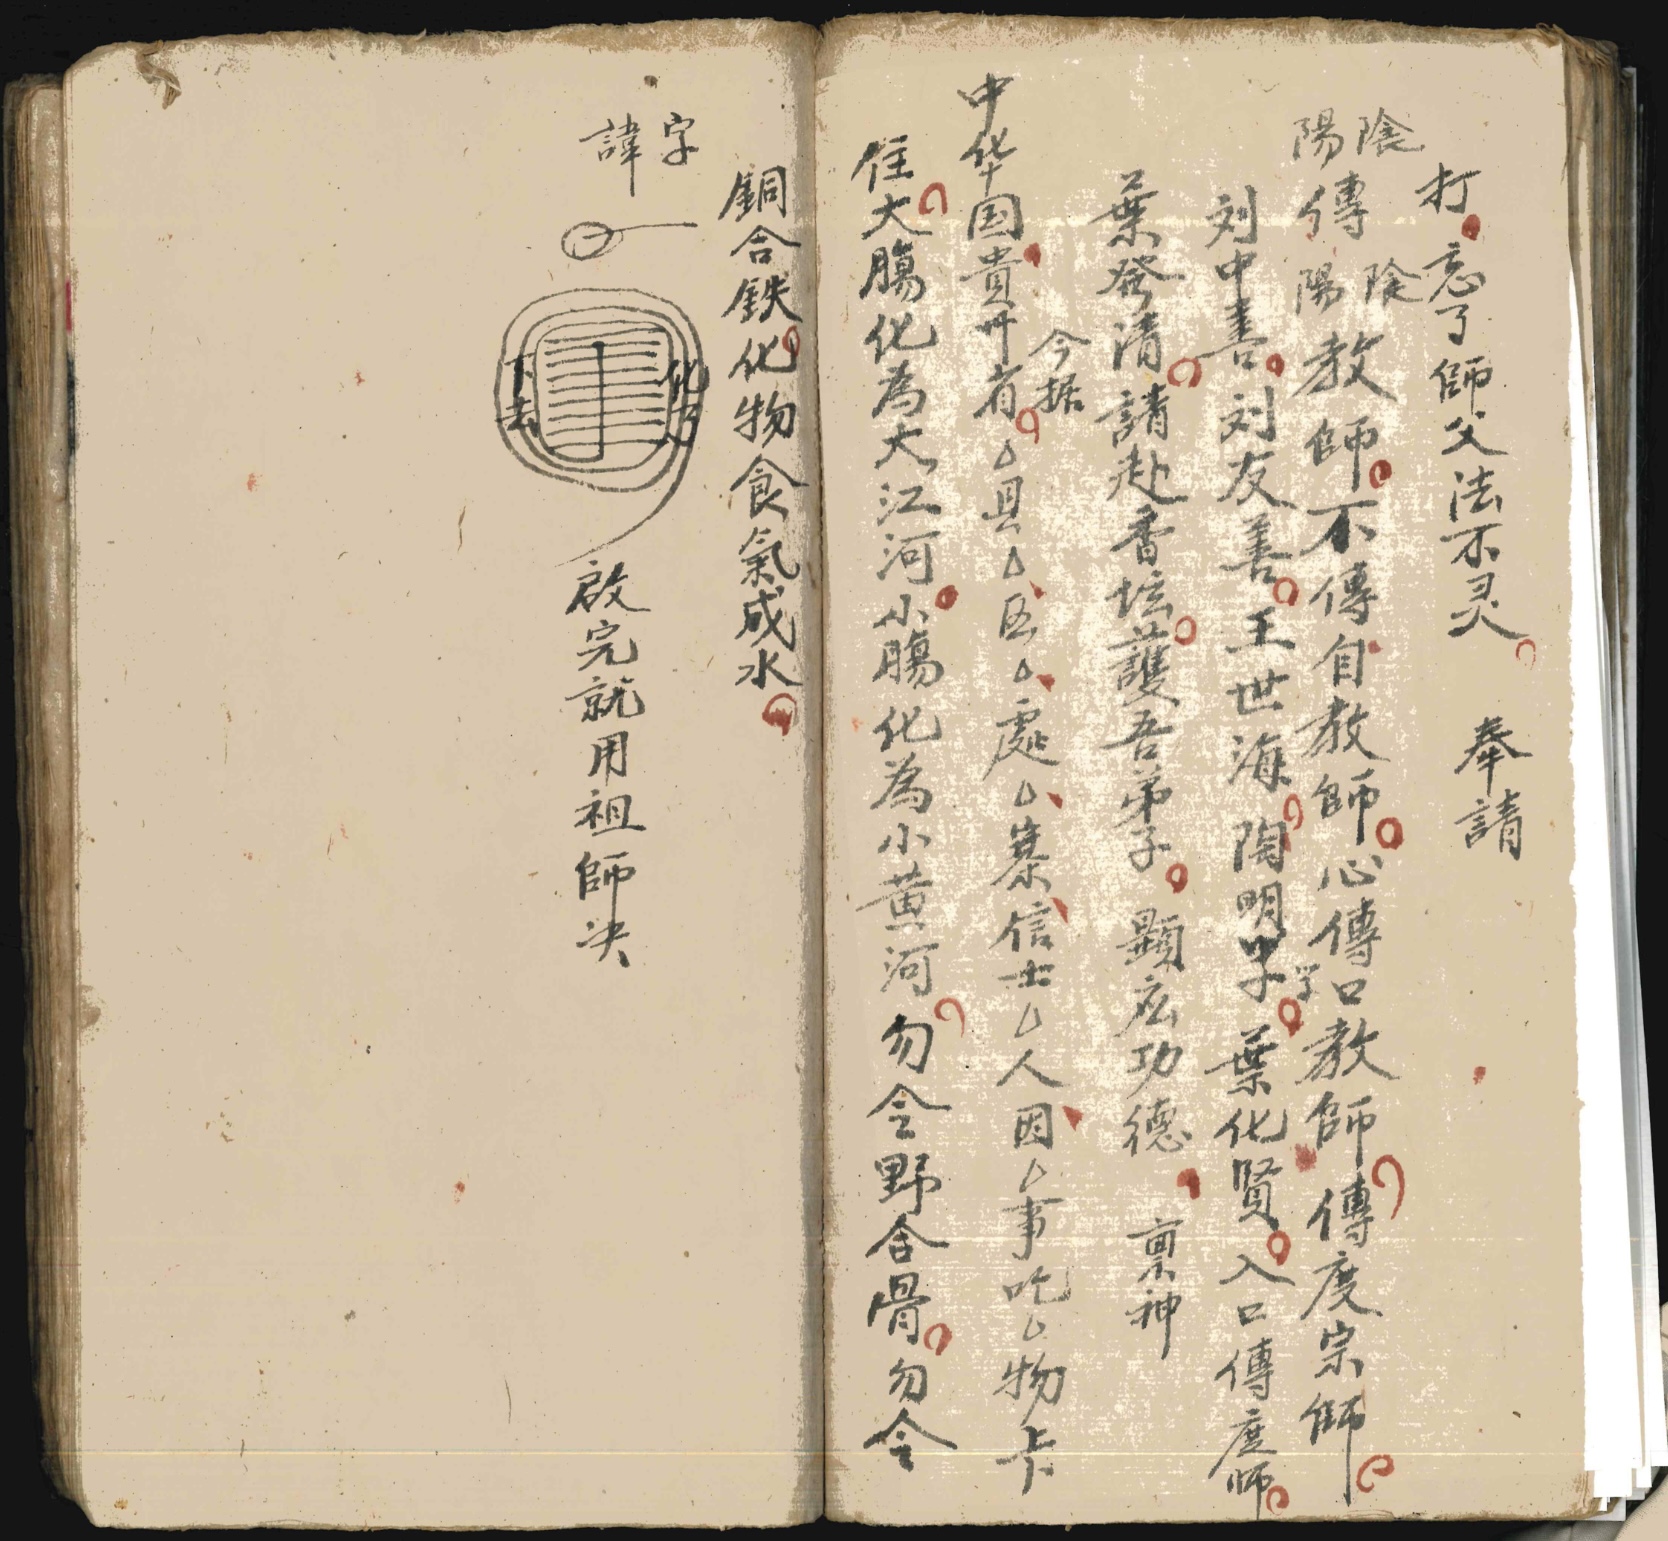 打忘了師父法不灵 奉請
陰陽傳陰陽教師不傳自教師心傳口教師傳度宗師
刘中善刘友善王世海陶明字葉化賢入口傳度師
字
葉發清請赴香坛護吾弟子顯应功德 禀神
今据
中华国貴州省厶县厶区厶處厶寨信士厶人因厶事吃厶物卡
住大腸化為大江河小腸化為小黄河勿令野舍骨勿令
銅合鉄化物食氣成水
字諱
化为
下去
啟完就用祖師决